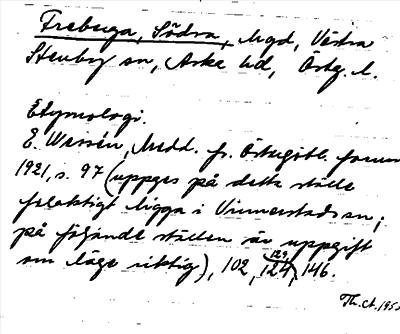 Freberga, Södra, hgd, Västra
Stenby sn, Aska hd, Östg. l.
Etymologi.
E. Wessén, Medd. fr. Östergötl. fornm.
1921, s. 97 (uppges på detta ställe
felaktigt ligga i Vinnerstads sn;
på följande ställen är uppgift
om läge riktig), 102, 124, 129, 146.
Th. A. 195